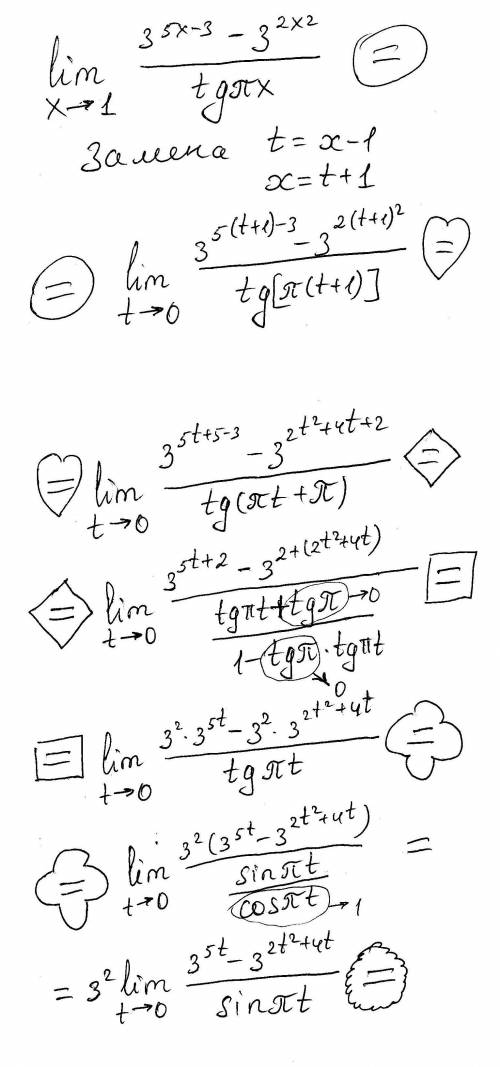 lim x→1 (3^(5x-3) - 3^(2x²)) / (tgπx) =
Замена t = x-1
x = t+1
= lim t→0 (3^(5(t+1)-3) - 3^(2(t+1)²)) / (tg[π(t+1)]) =
= lim t→0 (3^(5t+5-3) - 3^(2t²+4t+2)) / (tg(πt+π)) =
= lim t→0 (3^(5t+2) - 3^(2+(2t²+4t))) / ((tgπt + tgπ→0) / (1 - tgπ→0 · tgπt)) =
= lim t→0 (3² · 3^(5t) - 3² · 3^(2t²+4t)) / (tgπt) =
= lim t→0 (3²(3^(5t) - 3^(2t²+4t))) / (sinπt / cosπt→1) =
= 3² lim t→0 (3^(5t) - 3^(2t²+4t)) / (sinπt) =